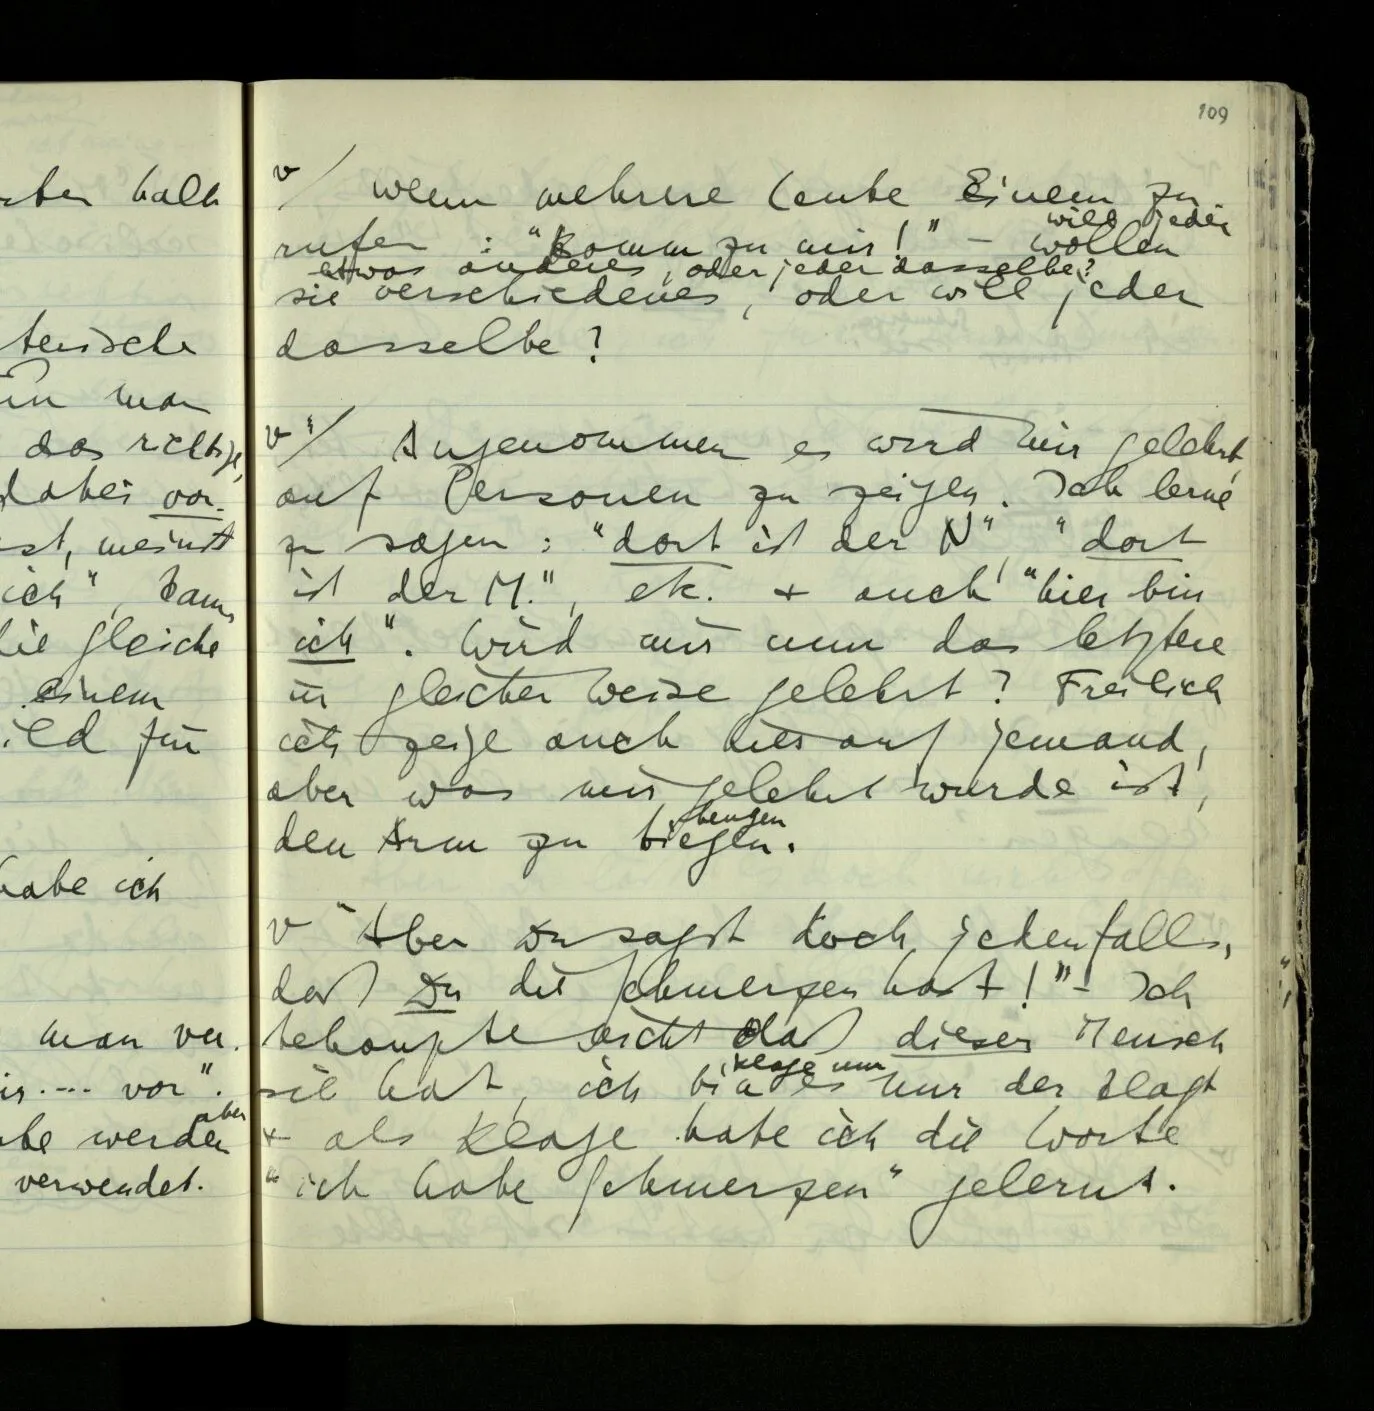 109
halb
v / Wenn mehrere Leute Einem zu-
will jeder
rufen: "Komm zu mir!" – wollen
etwas anderes, oder jeder dasselbe?
sie verschiedenes, oder will jeder
dasselbe?
man
das richtige,
dabei vor-
meinst
ich", kann
die gleiche
einem
für
v " / Angenommen es wird mir gelehrt,
auf Personen zu zeigen. Ich lerne
zu sagen: "dort ist der N", "dort
ist der M.", etc. + auch "hier bin
ich". Wird mir nun das letztere
in gleicher Weise gelehrt? Freilich
ich zeige auch hier auf jemand,
aber was mir gelehrt wurde ist,
beugen
den Arm zu biegen.
habe ich
v "Aber Du sagst doch jedenfalls,
daß Du die Schmerzen hast!" – Ich
behaupte nicht daß dieser Mensch
klage nur
sie hat, ich bin es nur der klagt
+ als Klage habe ich die Worte
"ich habe Schmerzen" gelernt.
man ver-
.... vor".
aber
werden
verwendet.